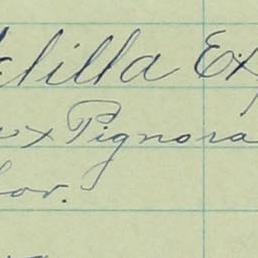 lilla Ex
x Pignora
or.